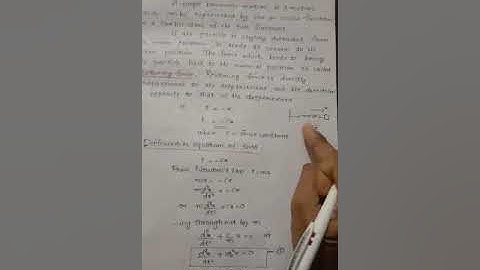 A simple harmonic motion is a motion
can be represented by sine or cosine function
or a combination of the two functions
If the particle is slightly displaced from
mean position, it tends to return to its
mean position. The force which tends to bring
particle back to its mean position is called
restoring force. Restoring force is directly
proportional to the displacement and its direction
opposite to that of the displacement
F = -cx
where c = force constant
Differential equation of SHM
F = -cx
From Newton's law, F = ma
ma = -cx
m d²x/dt² = -cx
or m d²x/dt² + cx = 0
throughout by m
d²x/dt² + c/m x = 0
d²x/dt² + ω₀²x = 0